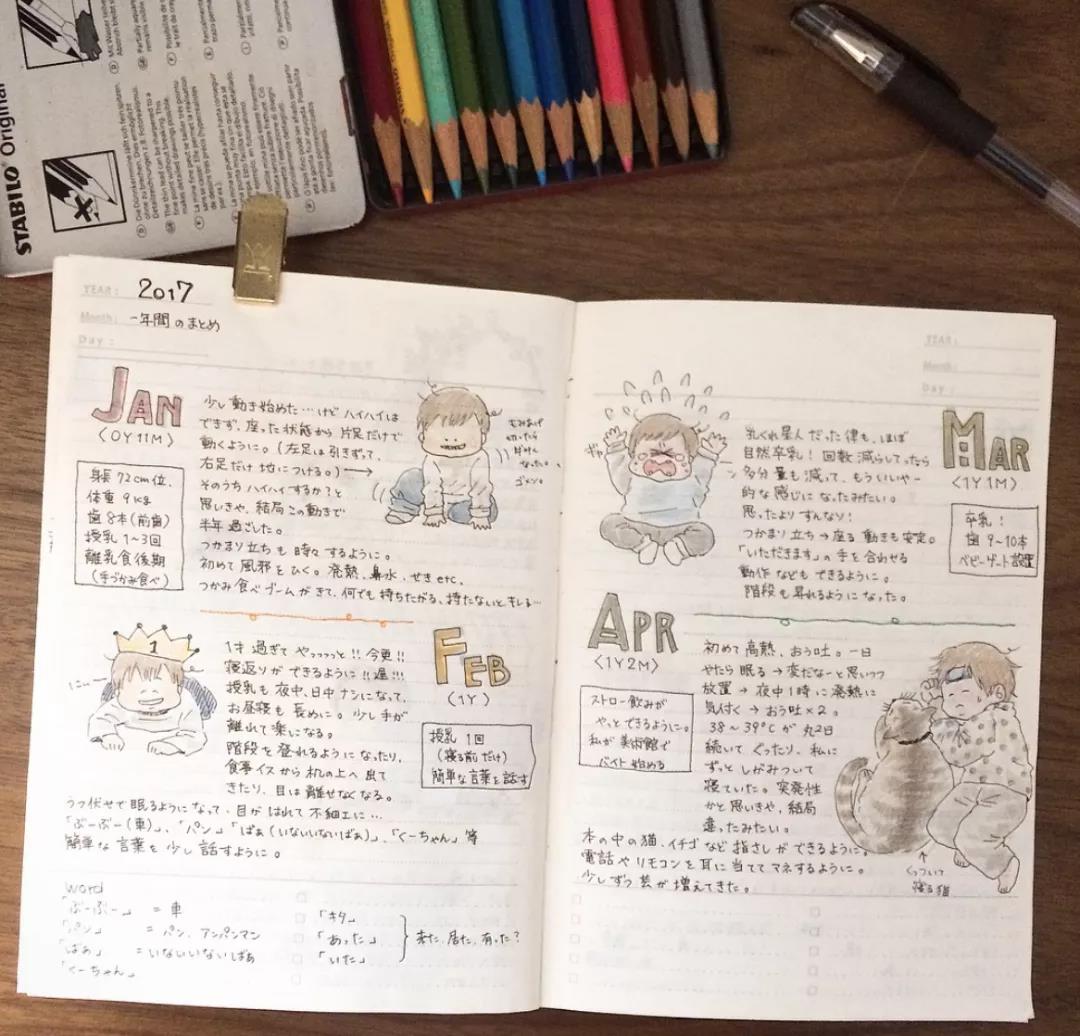 STABILO Original
YEAR: 2017
Month: 一年間のまとめ
Day:
JAN
(0Y11M)
身長 72cm位.
体重 9kg
歯 8本(前歯)
授乳 1~3回
離乳食後期
(手づかみ食べ)
少し動き始めた…けど ハイハイは
できず、座った状態から 片足だけで
動くように。(左足は引きずって、
右足だけ地につける。)→
そのうちハイハイするか?と
思いきや、結局この動きで
半年過ごした。
つかまり立ちも 時々するように。
初めて風邪をひく。発熱、鼻水、せき etc.
つかみ食べブームがきて、何でも持ちたがる、持たないとキレる…
もみあげ
切ったら
ゴメン。
FEB
(1Y)
授乳 1回
(寝る前だけ)
簡単な言葉を話す
1
にぃー
1才過ぎて やっっっっと!! 今更!!
寝返りが できるように!! 遅!!!
授乳も 夜中、日中ナシになって、
お昼寝も 長めに。少し手が
離れて楽になる。
階段を 登れるようになったり、
食事イスから机の上へ出て
きたり、目は離せなくなる。
うつ伏せで眠るようになって、目がはれて不細工に…
「ぶーぶー(車)」、「パン」「ばぁ(いないいないばぁ)」、「くーちゃん」等
簡単な言葉を少し話すように。
word
「ぶーぶー」 = 車
「パン」 = パン、アンパンマン
「ばぁ」 = いないいないばぁ
「くーちゃん」
「キタ」
「あった」
「いた」
来た、居た、有った?
YEAR:
Month:
Day:
MAR
(1Y1M)
卒乳!
歯 9~10本
ベビーゲート設置
ギャー
乳くれ星人だった律も、ほぼ
自然卒乳! 回数減らしてったら
多分量も減って、もういいやー
的な感じになったみたい。
思ったよりすんなり!
つかまり立ち→座る動きも安定。
「いただきます」の手を合わせる
動作などもできるように。
階段も昇れるようになった。
APR
(1Y2M)
ストロー飲みが
やっとできるように。
私が美術館で
バイト始める
初めて高熱、おう吐。一日
やたら眠る→変だなーと思いつつ
放置→夜中1時に発熱に
気付く→おう吐×2。
38~39℃が丸2日
続いてぐったり、私に
ずっとしがみついて
寝ていた。突発性
かと思いきや、結局
違ったみたい。
本の中の猫、イチゴなど指さしができるように。
電話やリモコンを耳に当ててマネするように。
少しずつ芸が増えてきた。
くっついて
寝る猫